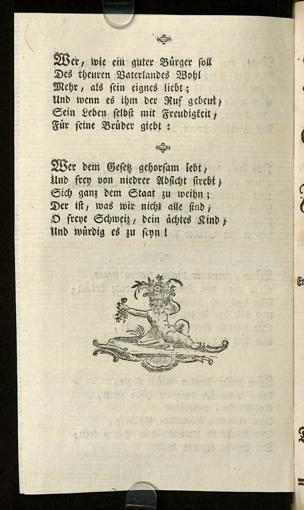 Wer, wie ein guter Bürger soll
Des theuren Vaterlandes Wohl
Mehr, als sein eignes liebt;
Und wenn es ihm der Ruf gebeut,
Sein Leben selbst mit Freudigkeit,
Für seine Brüder giebt:
Wer dem Gesetz gehorsam lebt,
Und frey von niedrer Absicht strebt,
Sich ganz dem Staat zu weihn;
Der ist, was wir nicht alle sind,
O freye Schweiz, dein ächtes Kind,
Und würdig es zu seyn!